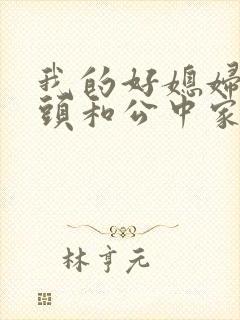 我的好媳婦
頭和公中家
林亨元